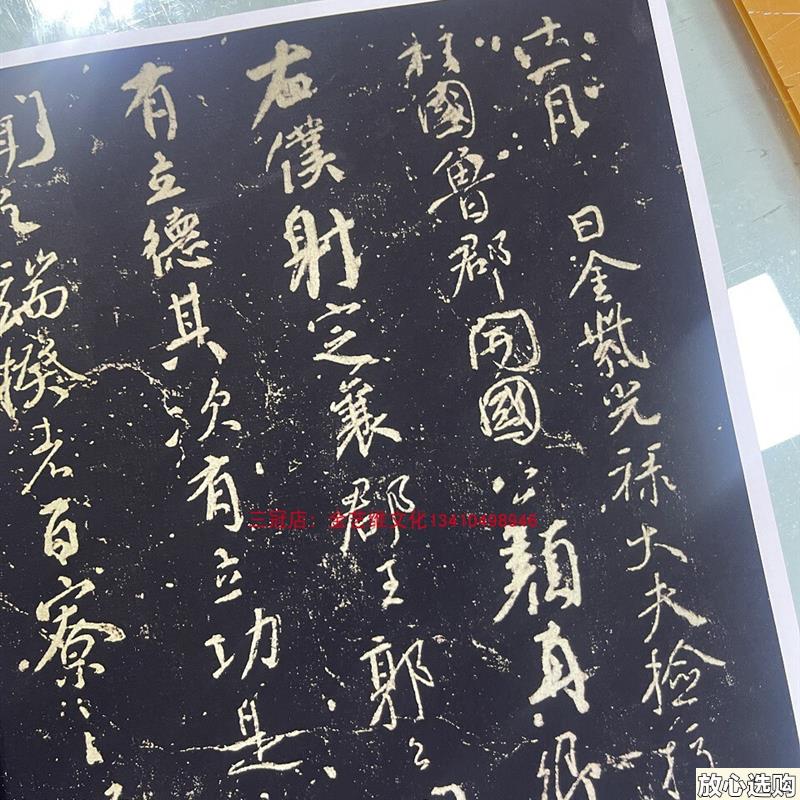 十一月 日金紫光禄大夫檢校
柱國魯郡開國公顏真卿
右僕射定襄郡王郭公
有立德其次有立功是
聞之端揆者百寮之
三冠店：金艺缘文化13410498946
放心选购